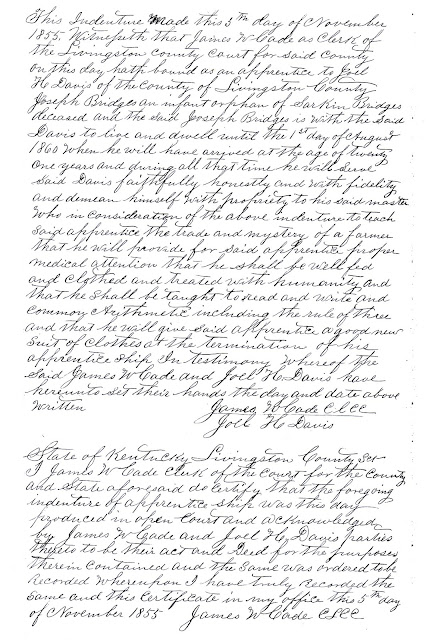 This Indenture Made this 5th day of November
1855. Witnesseth that James W Cade as Clerk of
the Livingston County Court for Said County
on this day hath bound as an apprentice to Joel
H Davis of the County of Livingston County
Joseph Bridges an infant orphan of Larkin Bridges
deceased and the Said Joseph Bridges is with the Said
Davis to live and dwell until the 1st day of August
1860 When he will have arrived at the age of twenty
One years and during all that time he will Serve
Said Davis faithfully honestly and with fidelity
and demean himself with propriety to his said master
Who in consideration of the above indenture to teach
Said apprentice the trade and mystery of a farmer
that he will provide for Said apprentice proper
medical attention that he shall be well fed
and clothed and treated with humanity and
that he Shall be taught to read and write and
common Arithmetic including the rule of three
and that he will give Said apprentice a good new
Suit of Clothes at the termination of his
apprentice Ship In testimony Whereof the
Said James W Cade and Joel H Davis have
hereunto Set their hands the day and date above
Written James W Cade CLCC
Joel H Davis
State of Kentucky Livingston County Sct
I James W Cade Clerk of the Court for the County
and State aforesaid do Certify that the foregoing
indenture of apprentice Ship was this day
produced in open Court and acknowledged
by James W Cade and Joel H, Davis parties
thereto to be their act and Deed for the purposes
therein Contained and the Same was ordered to be
Recorded Whereupon I have truly recorded the
Same and this Certificate in my office this 5th day
of November 1855 James W Cade CLCC